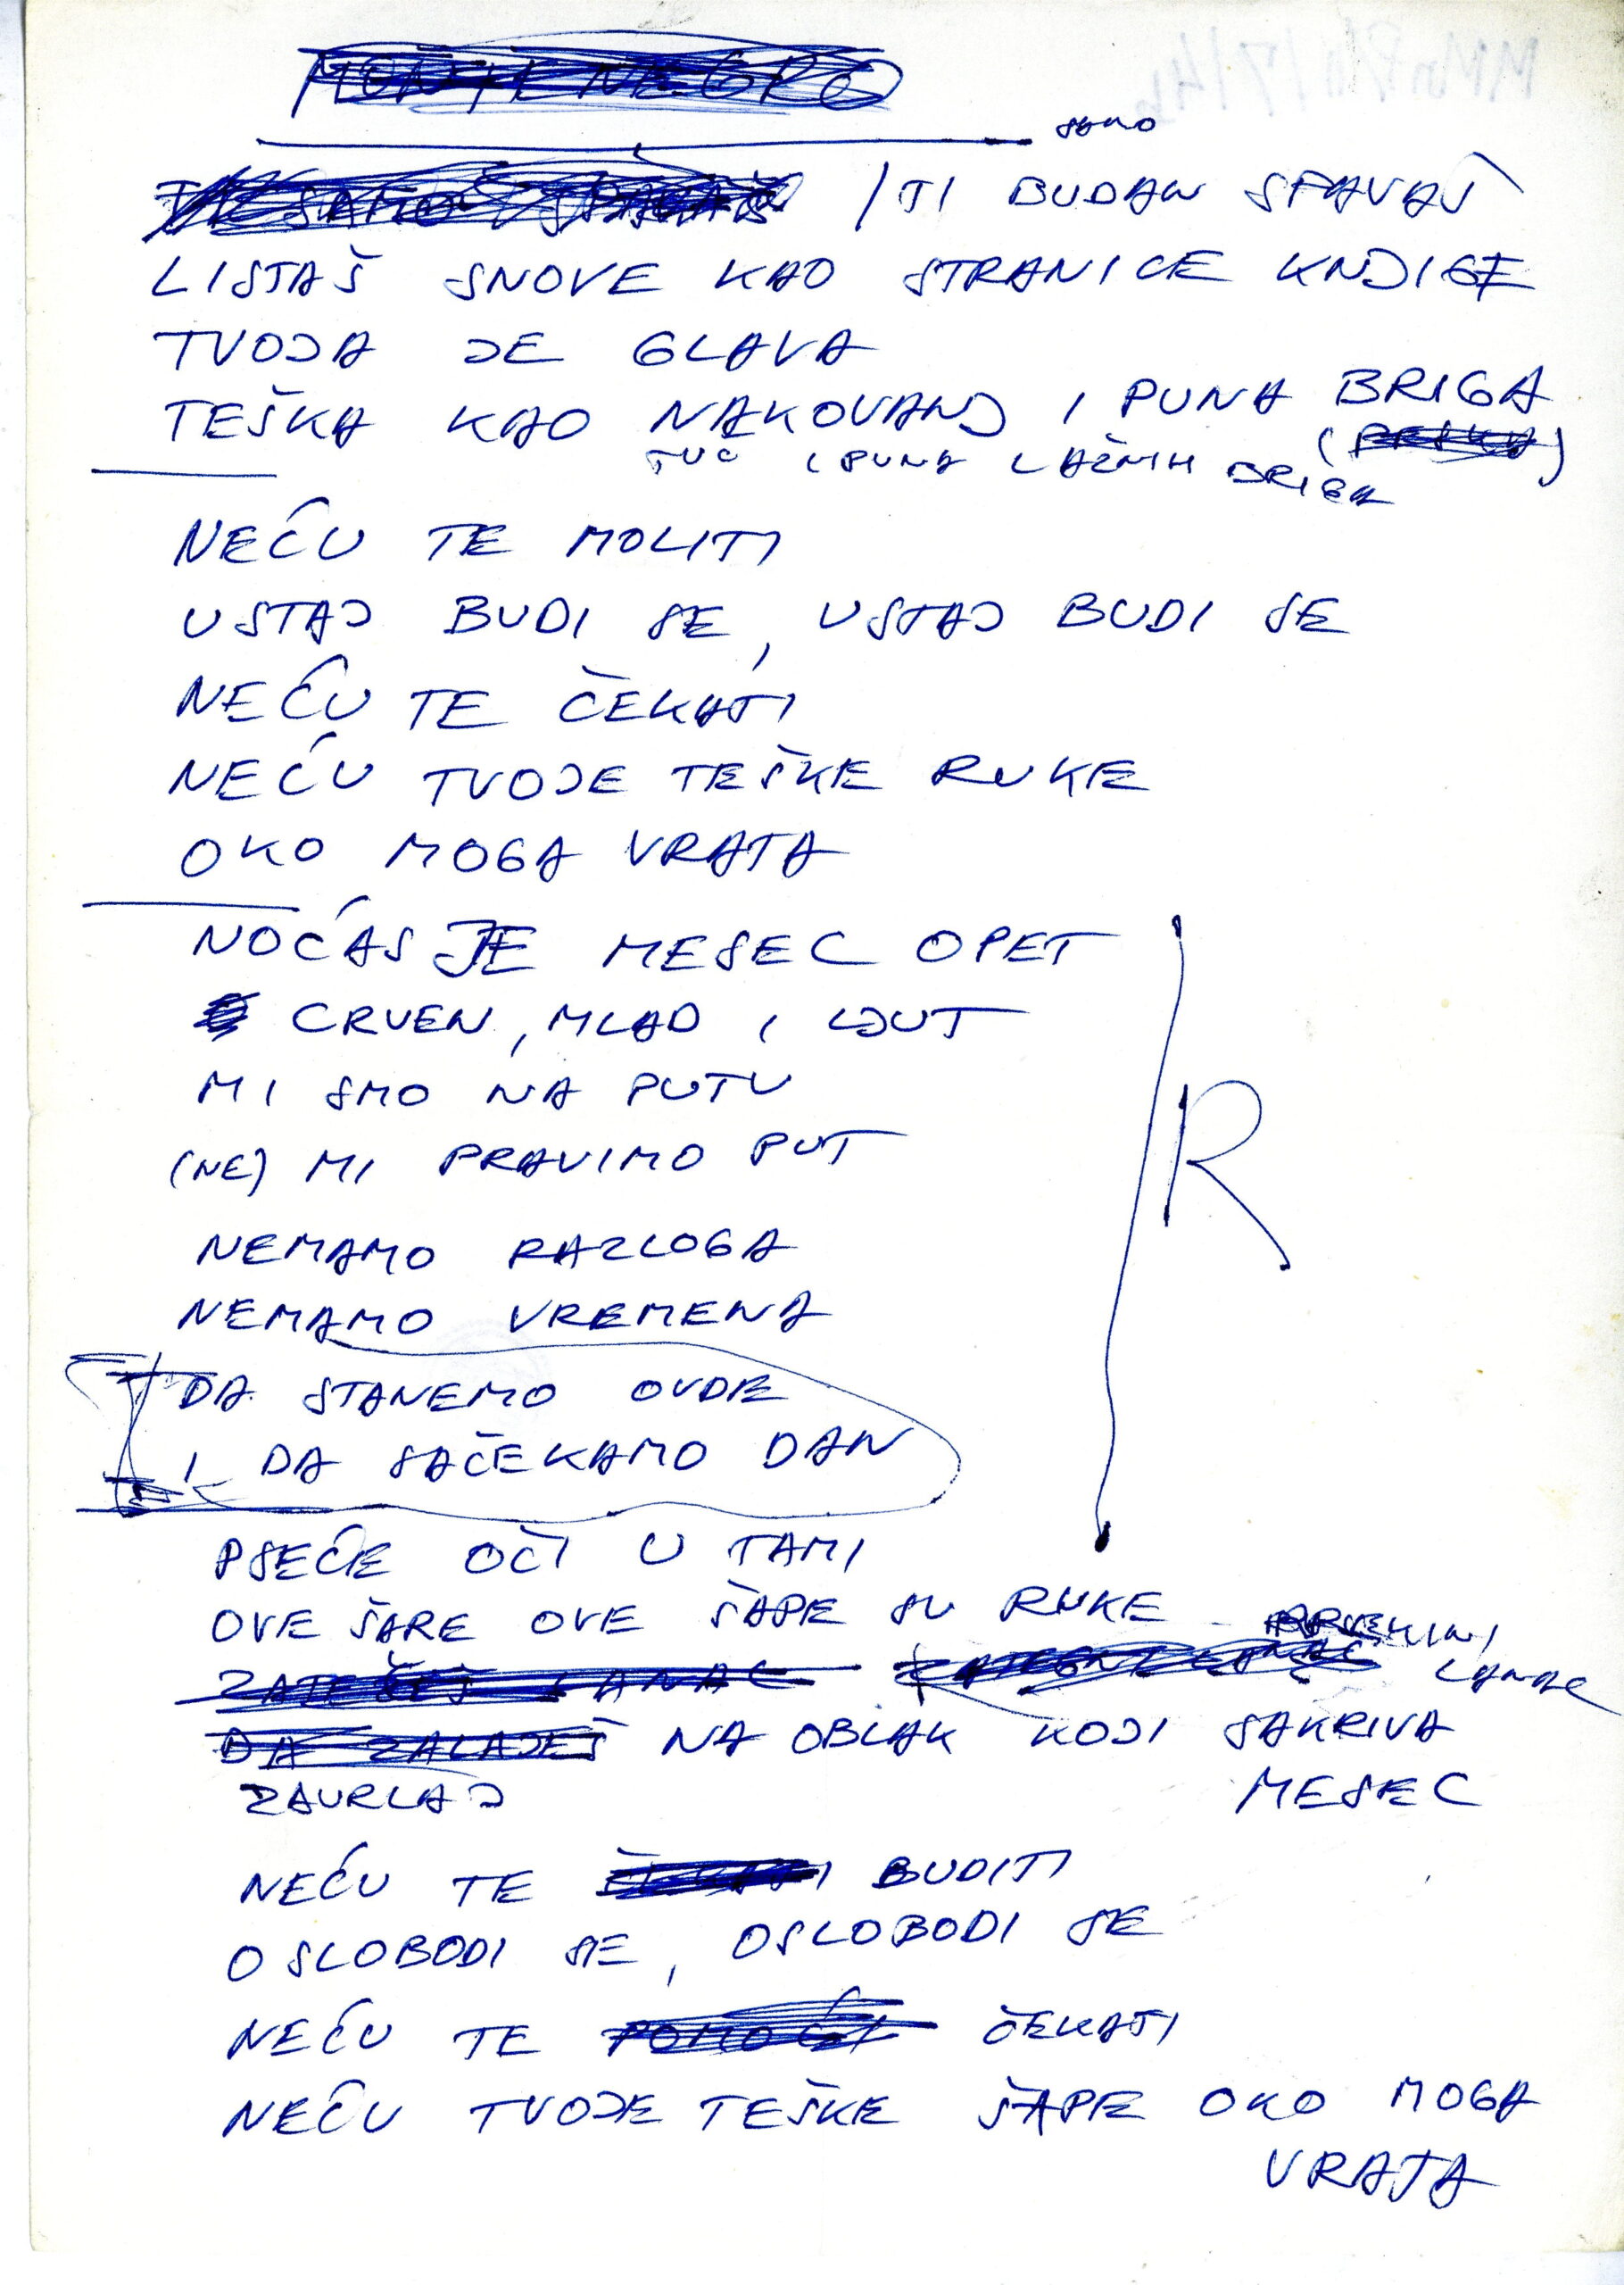 SAMO
/ TI BUDAN SPAVAŠ
LISTAŠ SNOVE KAO STRANICE KNJIGE
TVOJA JE GLAVA
TEŠKA KAO NAKOVANJ I PUNA BRIGA
TUČ I PUNA LAŽNIH BRIGA
NEĆU TE MOLITI
USTAJ BUDI SE, USTAJ BUDI SE
NEĆU TE ČEKATI
NEĆU TVOJE TEŠKE RUKE
OKO MOGA VRATA
NOĆAS JE MESEC OPET
CRVEN, MLAD I LJUT
MI SMO NA PUTU
(NE) MI PRAVIMO PUT
R
NEMAMO RAZLOGA
NEMAMO VREMENA
DA STANEMO OVDE
I DA SAČEKAMO DAN
PSEĆE OČI U TAMI
OVE ŠARE OVE ŠAPE SU RUKE
ZATEŽEŠ LANAC LANAC
DA ZALAJEŠ NA OBLAK KOJI SAKRIVA
ZAURLAJ MESEC
NEĆU TE BUDITI
OSLOBODI SE, OSLOBODI SE
NEĆU TE POMOĆI ČEKATI
NEĆU TVOJE TEŠKE ŠAPE OKO MOGA
VRATA